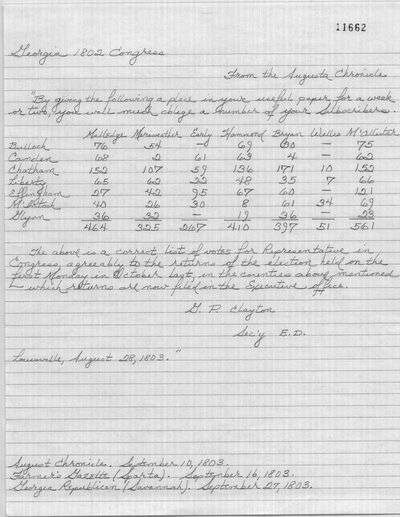 11662
Georgia 1802 Congress
From the Augusta Chronicle
"By giving the following a place in your useful paper for a week
or two, you will much oblige a number of your Subscribers.
Milledge Meriwether Early Hammond Bryan Welles M'Allister
Bullock 76 54 — 69 30 — 75
Camden 68 2 61 63 4 — 62
Chatham 152 107 59 136 171 10 152
Liberty 65 62 22 48 35 7 66
Effingham 27 42 95 67 60 — 121
M'Intosh 40 26 30 8 61 34 69
Glynn 36 32 — 19 36 — 23
464 325 267 410 397 51 561
The above is a correct list of votes for Representative in
Congress, agreeably to the returns of the election held on the
first Monday in October last, in the counties above mentioned
which returns are now filed in the Executive office.
G. R. Clayton
Sec'y E.D.
Louisville, August 28, 1803."
August Chronicle. September 10, 1803.
Farmer's Gazette (Sparta). September 16, 1803.
Georgia Republican (Savannah). September 27, 1803.